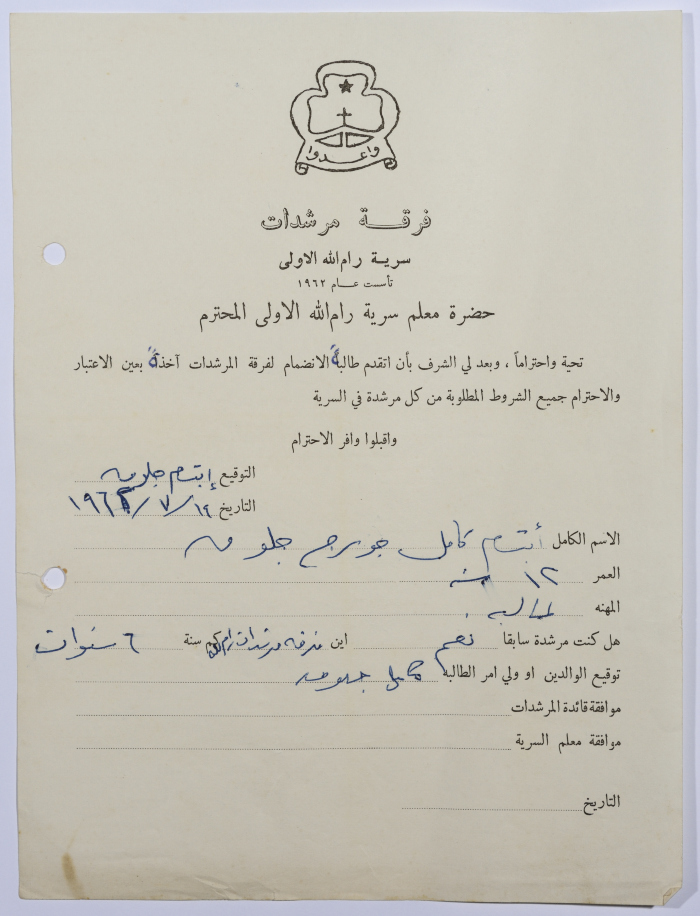 واعدوا
فرقة مرشدات
سرية رام الله الاولى
تأسست عام ١٩٦٢
حضرة معلم سرية رام الله الاولى المحترم
تحية واحتراماً ، وبعد لي الشرف بأن اتقدم طالبةً الانضمام لفرقة المرشدات آخذةً بعين الاعتبار
والاحترام جميع الشروط المطلوبة من كل مرشدة في السرية
واقبلوا وافر الاحترام
التوقيع إبتسام جلوق
التاريخ ١٩ / ٧ /
الاسم الكامل أبتسام كامل جورج جلوق
العمر ١٢ سنة
المهنه طالبه
هل كنت مرشدة سابقا نعم اين فرقة مرشدات رام الله كم سنة ٦ سنوات
توقيع الوالدين او ولي امر الطالبه كامل جلوق
موافقة قائدة المرشدات
موافقة معلم السرية
التاريخ